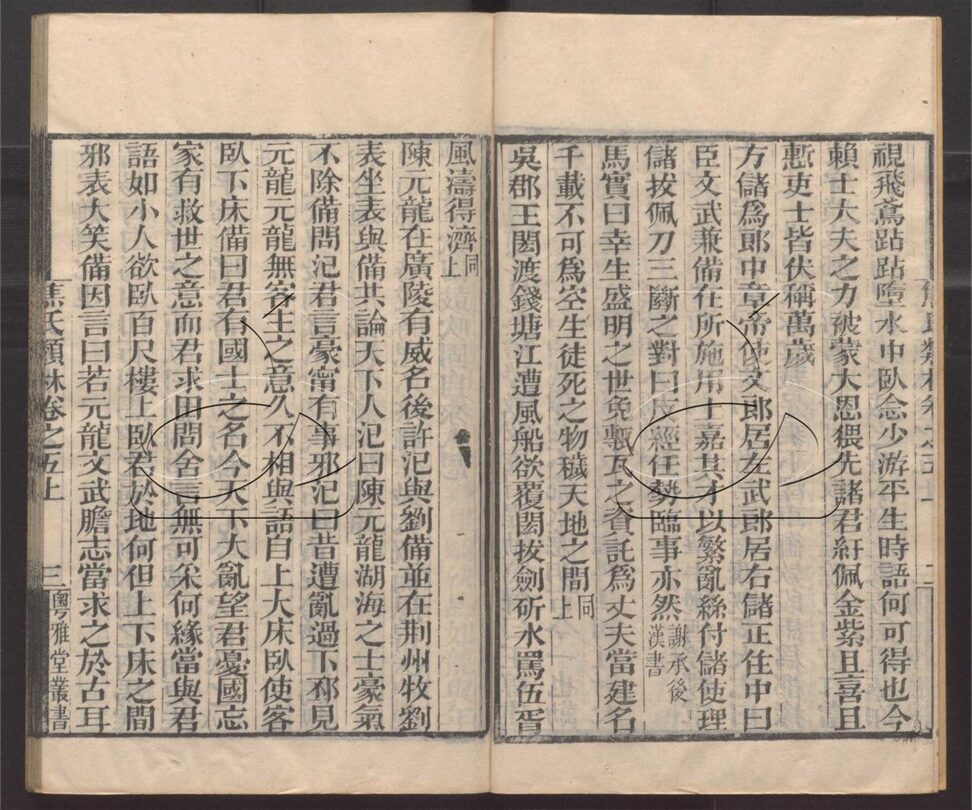 視飛鳶跕跕墮水中臥念少游平生時語何可得也今
賴士大夫之力被蒙大恩猥先諸君紆佩金紫且喜且
慙吏士皆伏稱萬歲
方儲爲郎中章帝使文郎居左武郎居右儲正住中曰
臣文武兼備在所施用上嘉其才以繁亂絲付儲使理
儲拔佩刀三斷之對曰反經任勢臨事亦然謝承後漢書
馬實曰幸生盛明之世免甎瓦之資託爲丈夫當建名
千載不可爲空生徒死之物穢天地之間同上
吳郡王閎渡錢塘江遭風船欲覆閎拔劍斫水罵伍胥
風濤得濟同上
陳元龍在廣陵有威名後許汜與劉備並在荆州牧劉
表坐表與備共論天下人汜曰陳元龍湖海之士豪氣
不除備問汜君言豪甯有事邪汜曰昔遭亂過下邳見
元龍元龍無客主之意久不相與語自上大床臥使客
臥下床備曰君有國士之名今天下大亂望君憂國忘
家有救世之意而君求田問舍言無可采何緣當與君
語如小人欲臥百尺樓上臥君於地何但上下床之間
邪表大笑備因言曰若元龍文武膽志當求之於古耳
焦氏類林卷之五上
三
粵雅堂叢書